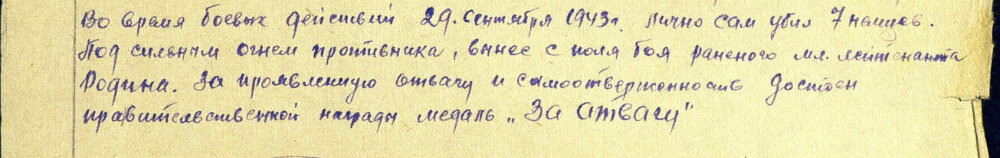 Во время боевых действий 29. сентября 1943 г лично сам убил 7 немцев.
Под сильным огнем противника, вынес с поля боя раненого мл. лейтенанта
Родина. За проявленную отвагу и самоотверженность достоен
правительственной награды медаль „За отвагу"